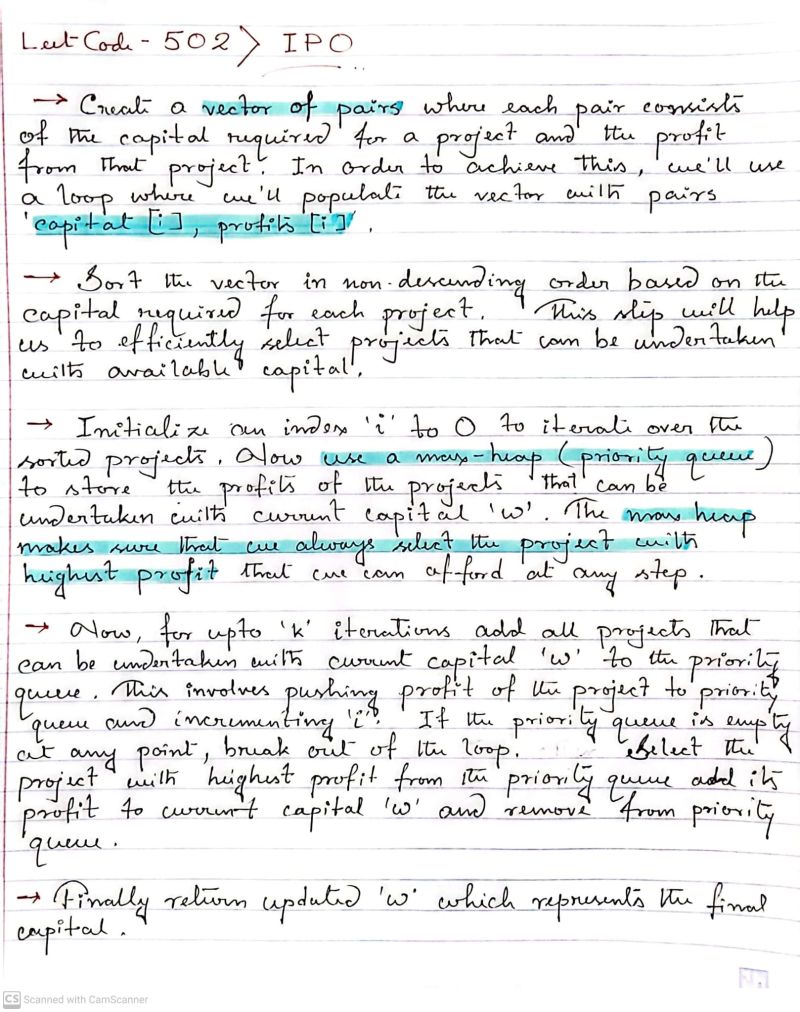 LeetCode - 502 > IPO
→ Create a vector of pairs where each pair consists
of the capital required for a project and the profit
from that project. In order to achieve this, we'll use
a loop where we'll populate the vector with pairs
'capital [i], profits [i]'.
→ Sort the vector in non-descending order based on the
capital required for each project. This step will help
us to efficiently select projects that can be undertaken
with available capital.
→ Initialize an index 'i' to 0 to iterate over the
sorted projects. Now use a max-heap (priority queue)
to store the profits of the projects that can be
undertaken with current capital 'w'. The max heap
makes sure that we always select the project with
highest profit that we can afford at any step.
→ Now, for upto 'k' iterations add all projects that
can be undertaken with current capital 'w' to the priority
queue. This involves pushing profit of the project to priority
queue and incrementing 'i'. If the priority queue is empty
at any point, break out of the loop. Select the
project with highest profit from the priority queue add its
profit to current capital 'w' and remove from priority
queue.
→ Finally return updated 'w' which represents the final
capital.
N.
CS Scanned with CamScanner